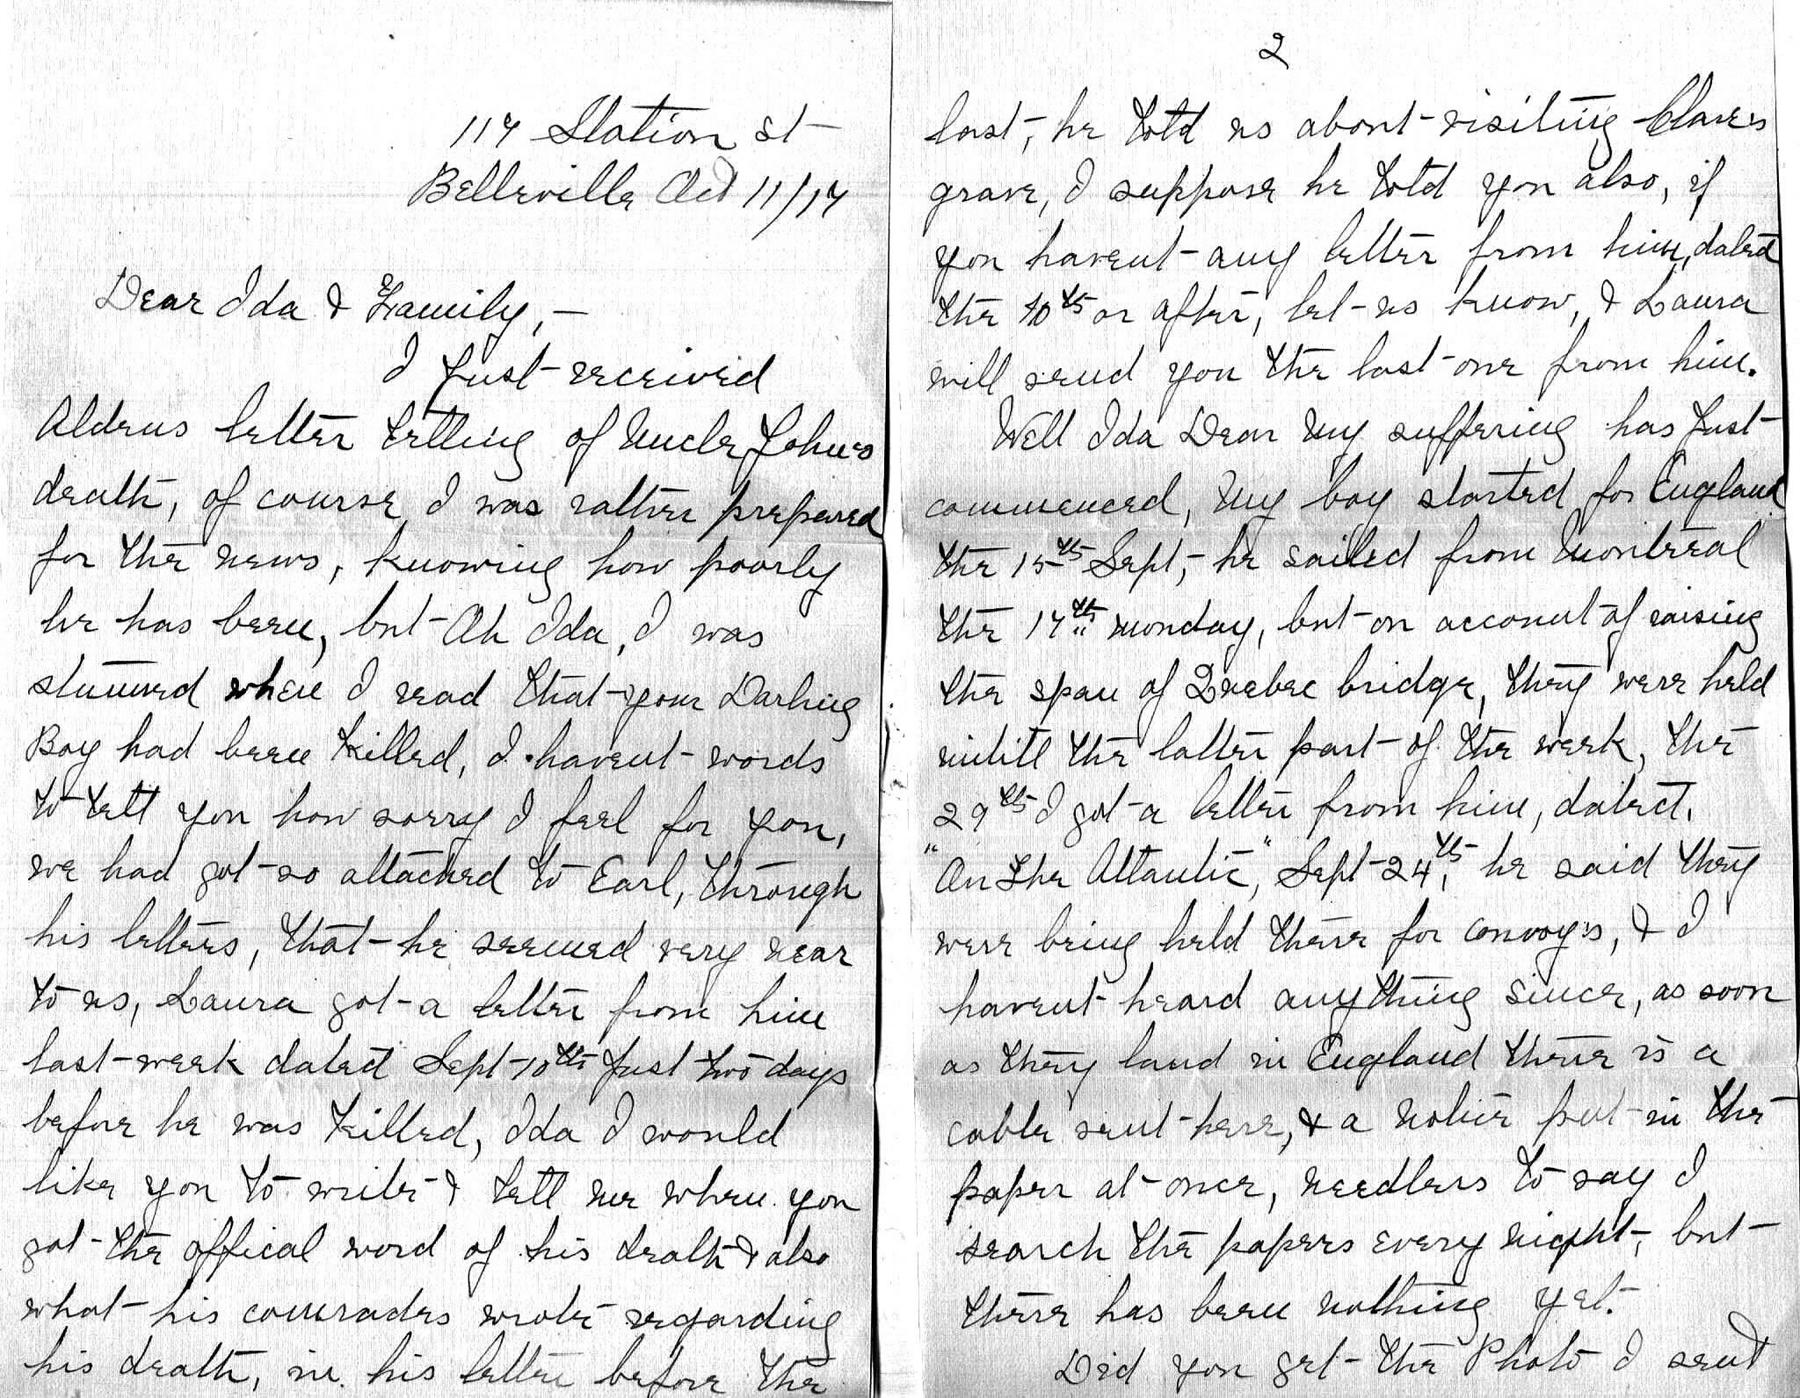 117 Station st
Belleville Oct 11/17
Dear Ida & Family, —
I just received
Aldens letter telling of Uncle Johns
death, of course I was rather prepared
for the news, knowing how poorly
he has been, but Oh Ida, I was
stunned when I read that your Darling
Boy had been killed, I havent words
to tell you how sorry I feel for you,
we had got so attached to Earl, through
his letters, that he seemed very near
to us, Laura got a letter from him
last week dated Sept 10th just two days
before he was killed, Ida I would
like you to write & tell me when you
got the offical word of his death & also
what his comrades wrote regarding
his death, in his letter before the
2
last, he told us about visiting
grave, I suppose he told you also, if
you havent any letter from him, dated
the 10th or after, let us know, & Laura
will send you the last one from him.
Well Ida Dear my suffering has just
commenced, my boy started for England
the 15th Sept, he sailed from Montreal
the 17th monday, but on account of raising
the span of Quebec bridge, they were held
untill the latter part of the week, the
29th I got a letter from him, dated.
"On The Atlantic," Sept 24th, he said they
were being held there for convoy's, & I
havent heard anything since, as soon
as they land in England there is a
cable sent here, & a notice put in the
paper at once, needless to say I
search the papers every night, but
there has been nothing yet.
Did you get the Photo I sent